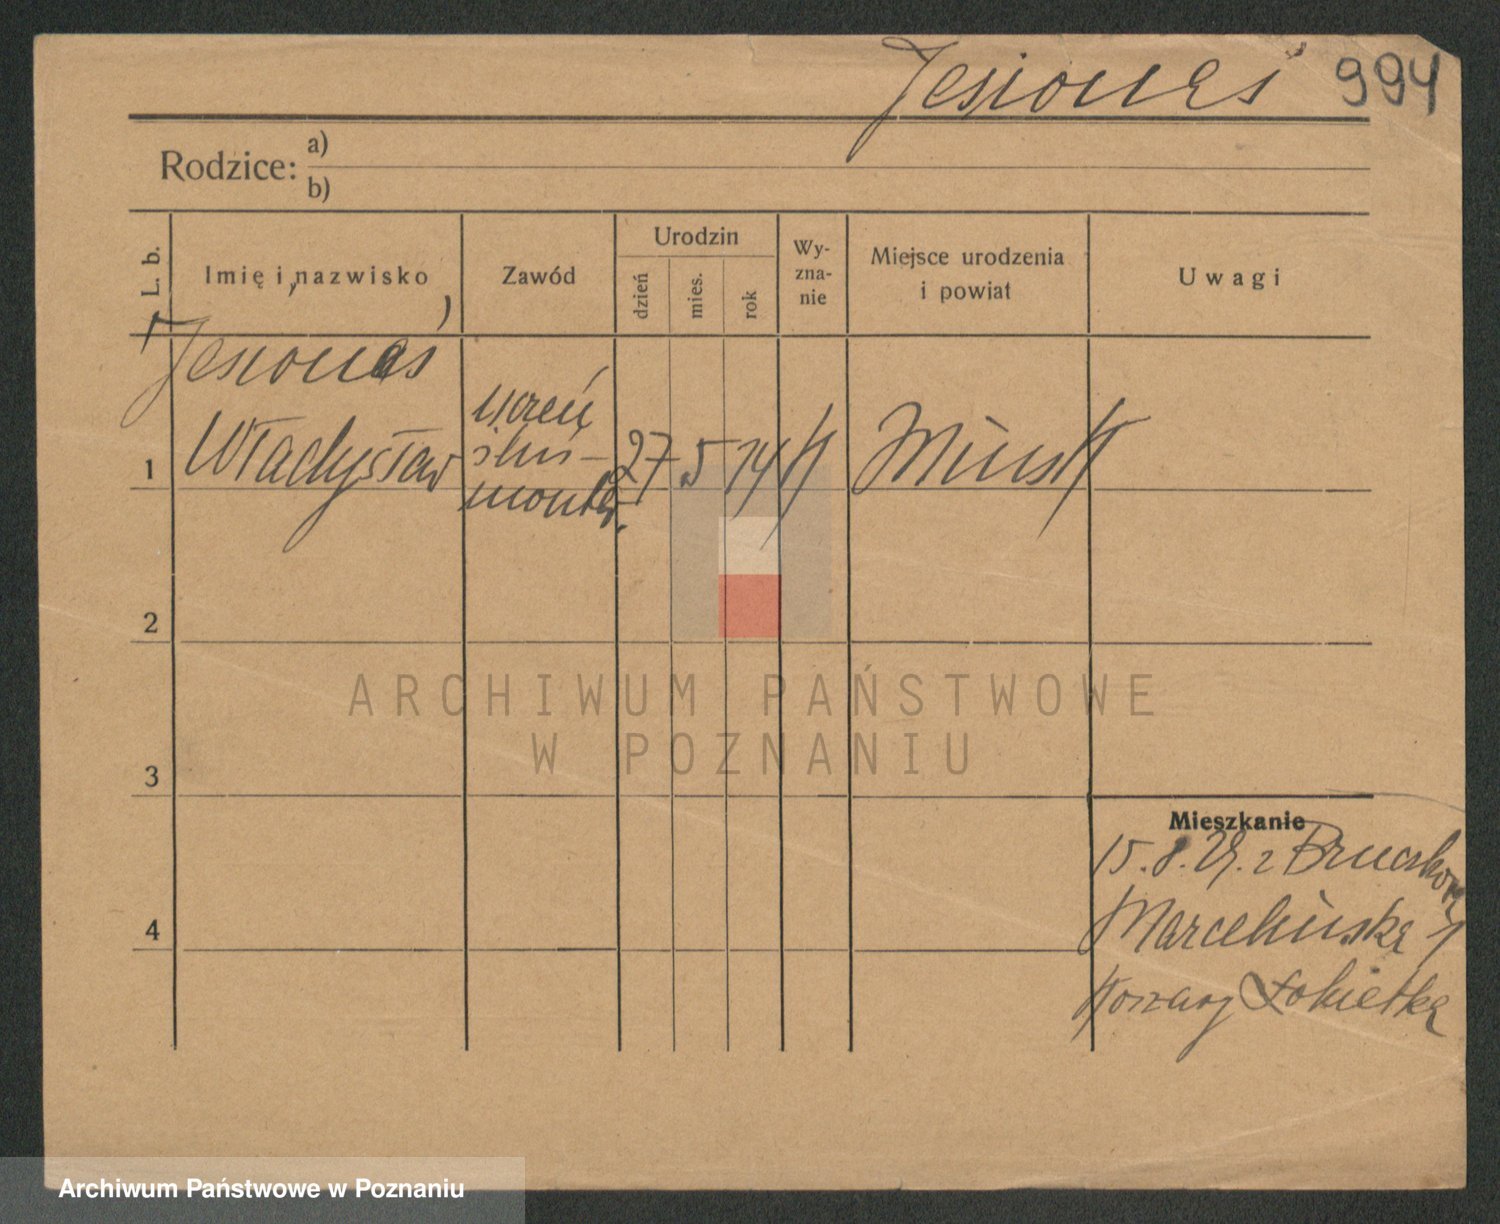 Jesioneś 994
Rodzice: a)
b)
L. b.
Imię i nazwisko
Zawód
Urodzin
dzień
mies.
rok
Wy-
zna-
nie
Miejsce urodzenia
i powiat
Uwagi
Jesioneś
1 Władysław
uczeń
ślus-
monter.
27 5 14 K Minsk
2
3
4
Mieszkanie
15.8.29. z
Marcelińska
Koszary Łokietka
ARCHIWUM PAŃSTWOWE
W POZNANIU
Archiwum Państwowe w Poznaniu